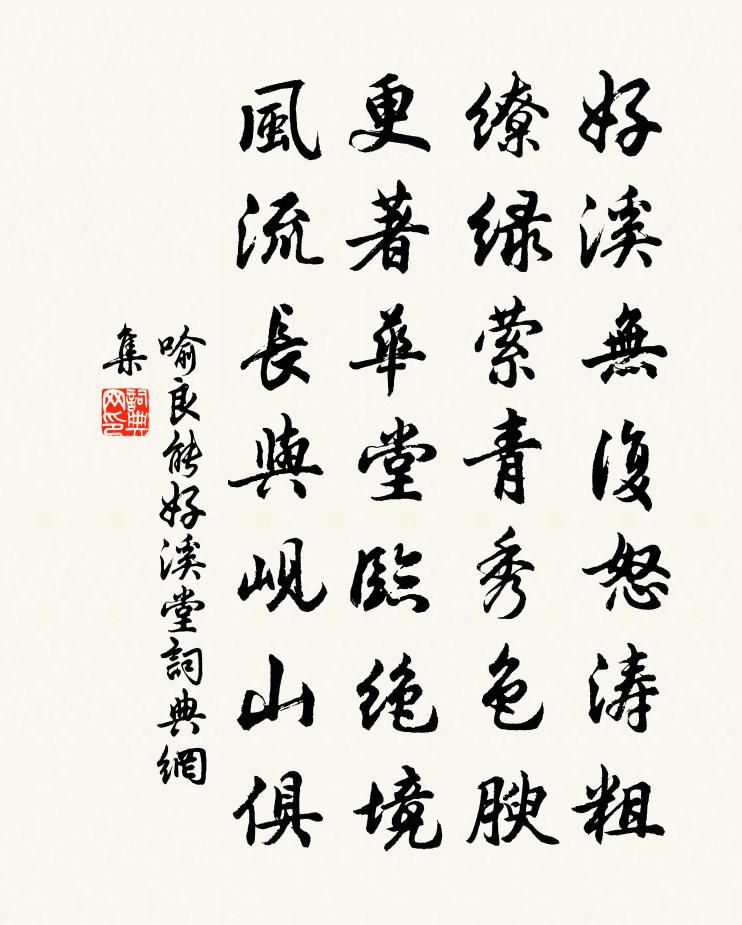 好溪無復怒涛粗
繚緑縈青秀色腴
更著華堂臨絶境
風流長與峴山俱
喻良能好溪堂詞典網
集
詞典
网印